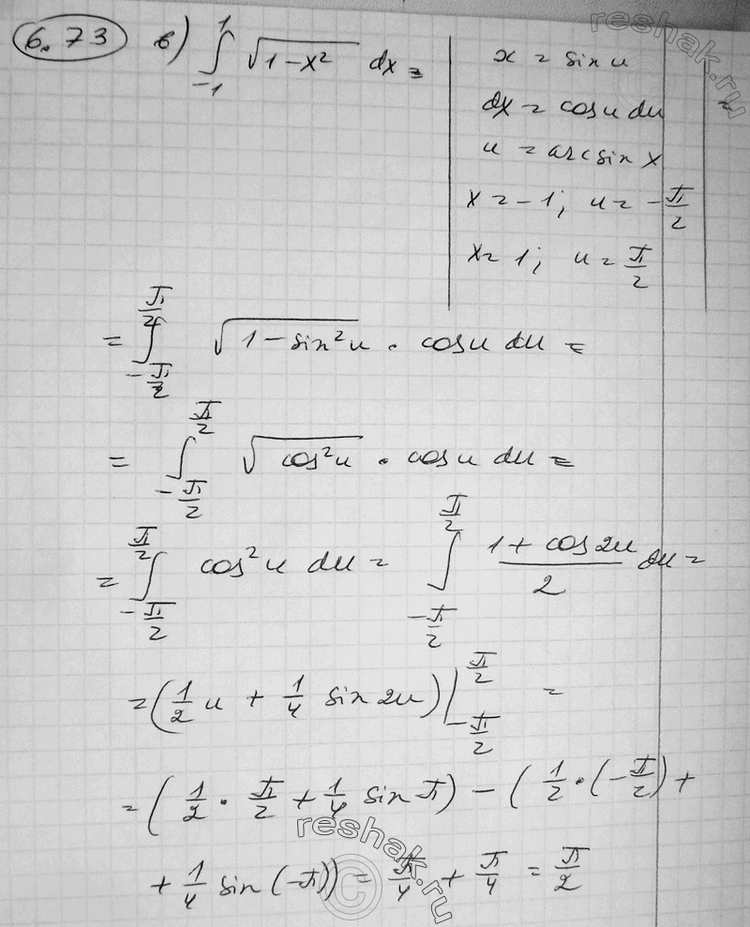 6.73 в) ∫_{-1}^{1} √(1-x²) dx =
x = sin u
dx = cos u du
u = arcsin x
x = -1; u = -π/2
x = 1; u = π/2
=
= ∫_{-π/2}^{π/2} √(1-sin²u) · cos u du =
= ∫_{-π/2}^{π/2} √(cos²u) · cos u du =
= ∫_{-π/2}^{π/2} cos²u du = ∫_{-π/2}^{π/2} (1 + cos 2u)/2 du =
= (1/2 u + 1/4 sin 2u) |_{-π/2}^{π/2} =
= (1/2 · π/2 + 1/4 sin π) - (1/2 · (-π/2) +
+ 1/4 sin (-π)) = π/4 + π/4 = π/2
reshak.ru
reshak.ru
©